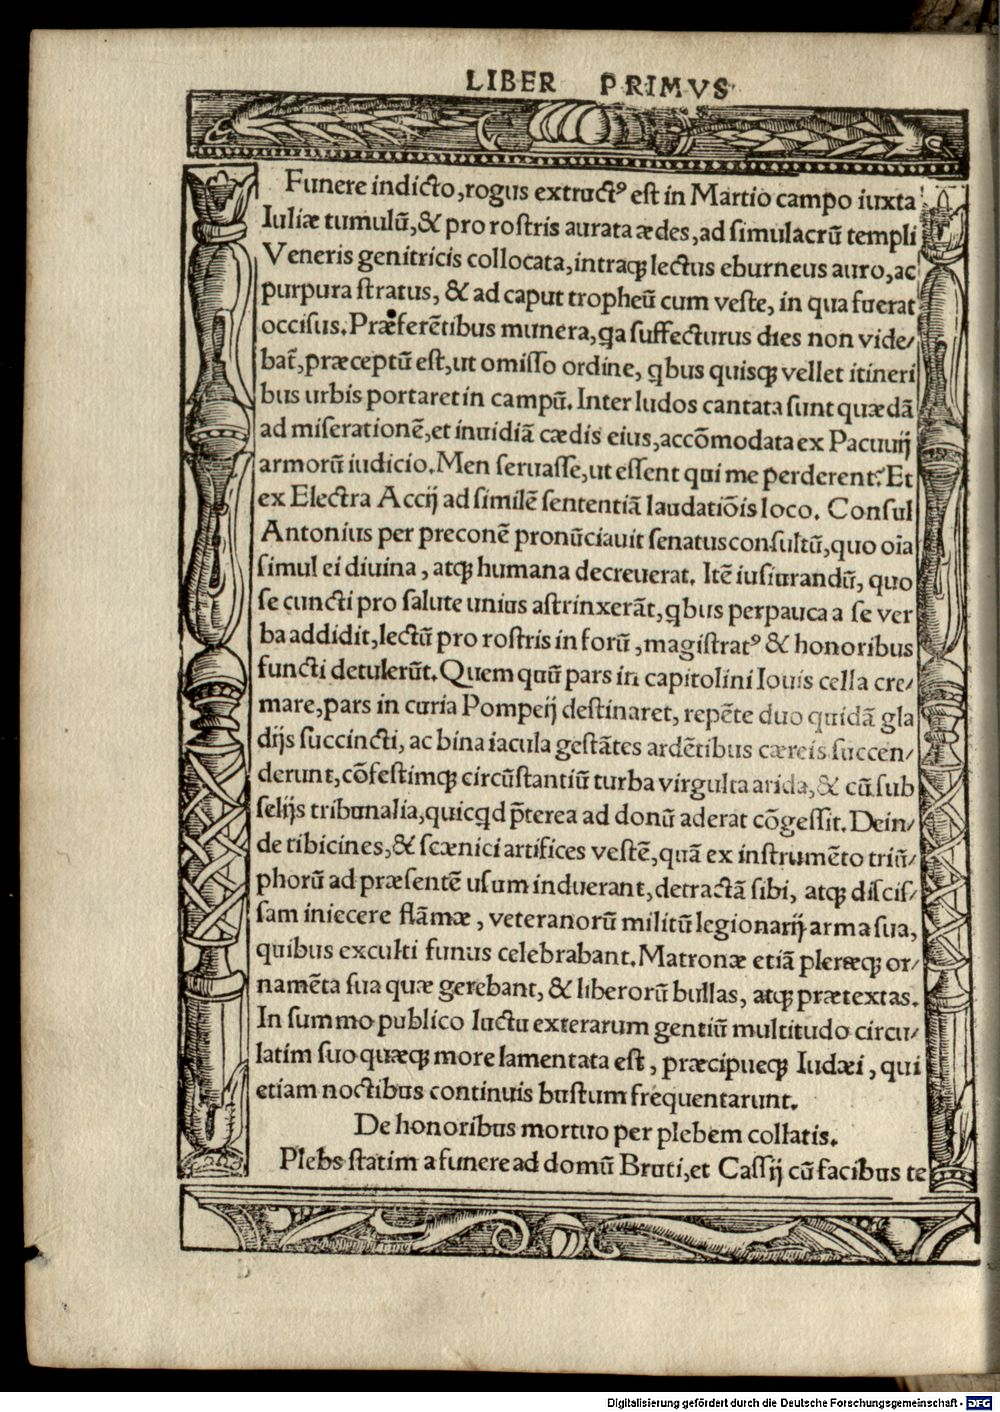 LIBER PRIMVS
Funere indicto,rogus extructꝰ est in Martio campo iuxta
Iuliæ tumulũ,& pro rostris aurata ædes,ad simulacrũ templi
Veneris genitricis collocata,intraqꝫ lectus eburneus auro,ac
purpura stratus, & ad caput tropheũ cum veste, in qua fuerat
occisus.Præferẽtibus munera,qa suffecturus dies non vide/
bat̃,præceptũ est,ut omisso ordine, qbus quisqꝫ vellet itineri
bus urbis portaret in campũ.Inter ludos cantata sunt quædã
ad miserationẽ,et inuidiã cædis eius,accõmodata ex Pacuuij
armorũ iudicio.Men seruasse,ut essent qui me perderent? Et
ex Electra Accij ad similẽ sententiã laudatiõis loco. Consul
Antonius per preconẽ pronũciauit senatusconsultũ,quo oĩa
simul ei diuina, atqꝫ humana decreuerat. Itẽ iusiurandũ, quo
se cuncti pro salute unius astrinxerãt,qbus perpauca a se ver
ba addidit,lectũ pro rostris in forũ ,magistratꝰ & honoribus
functi detulerũt.Quem quũ pars in capitolini Iouis cella cre/
mare,pars in curia Pompeij destinaret, repẽte duo quidã gla
dijs succincti, ac bina iacula gestãtes ardẽtibus cæreis succen/
derunt,cõfestimqꝫ circũstantiũ turba virgulta arida,& cũ sub
selijs tribunalia,quicqd p̃terea ad donũ aderat cõgessit.Dein/
de tibicines,& scænici artifices vestẽ,quã ex instrumẽto triũ/
phorũ ad præsentẽ usum induerant,detractã sibi, atqꝫ discis/
sam iniecere flãmæ , veteranorũ militũ legionarij arma sua,
quibus exculti funus celebrabant.Matronæ etiã pleræqꝫ or/
namẽta sua quæ gerebant, & liberorũ bullas, atqꝫ prætextas.
In summo publico luctu exterarum gentiũ multitudo circu/
latim suo quæqꝫ more lamentata est , præcipueqꝫ Iudæi , qui
etiam noctibus continuis bustum frequentarunt.
De honoribus mortuo per plebem collatis.
Plebs statim a funere ad domũ Bruti,et Cassij cũ facibus te
Digitalisierung gefördert durch die Deutsche Forschungsgemeinschaft - DFG